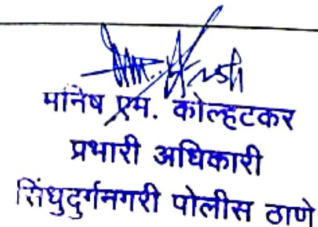 मनिष एम. कोल्हटकर
प्रभारी अधिकारी
सिंधुदुर्गनगरी पोलीस ठाणे